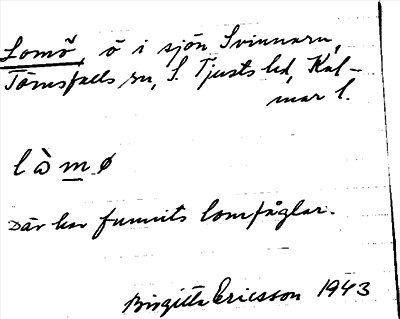 Lomö, ö i sjön Svinnaren,
Törnsfalls sn, S. Tjusts hd, Kal-
mar l.
l ò m ø
Där har funnits lomfåglar.
Birgitta Ericsson 1943